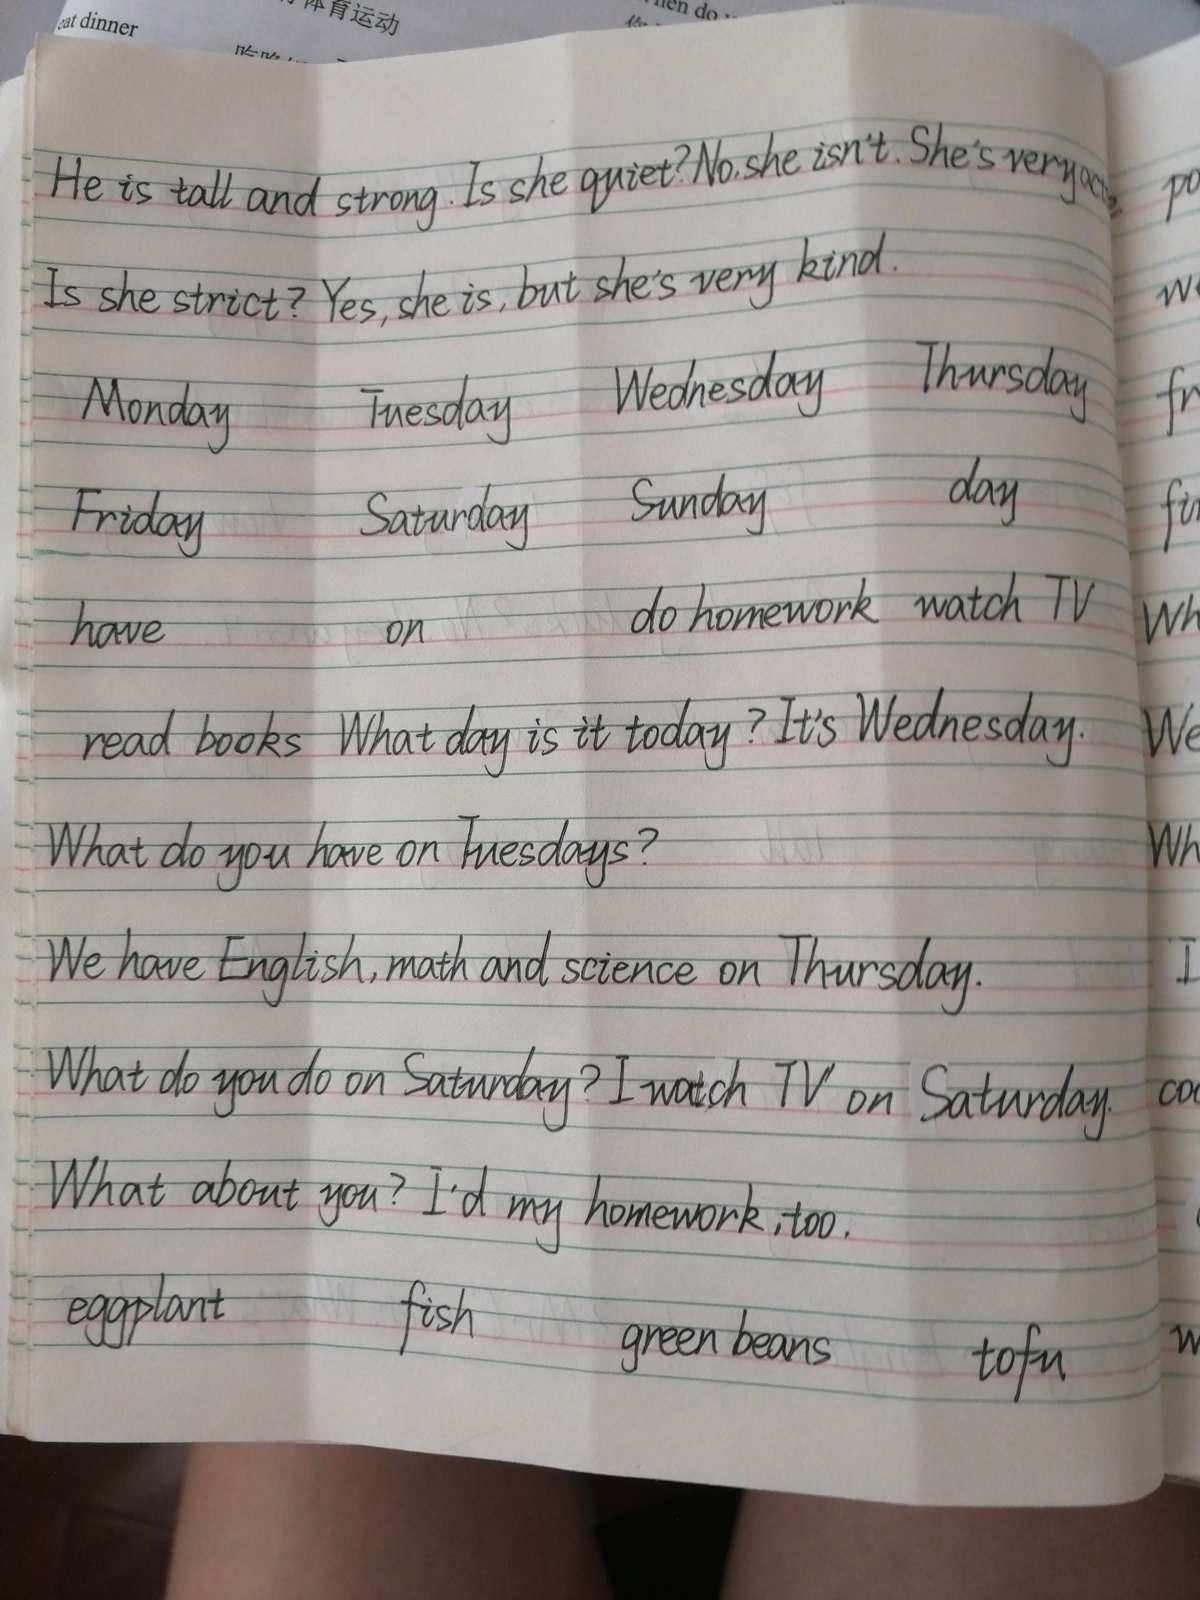 eat dinner
体育运动
He is tall and strong. Is she quiet? No, she isn't. She's very
Is she strict? Yes, she is, but she's very kind.
Monday Tuesday Wednesday Thursday
Friday Saturday Sunday day
have on do homework watch TV
read books What day is it today? It's Wednesday.
What do you have on Tuesdays?
We have English, math and science on Thursday.
What do you do on Saturday? I watch TV on Saturday.
What about you? I'd my homework, too.
eggplant fish green beans tofu